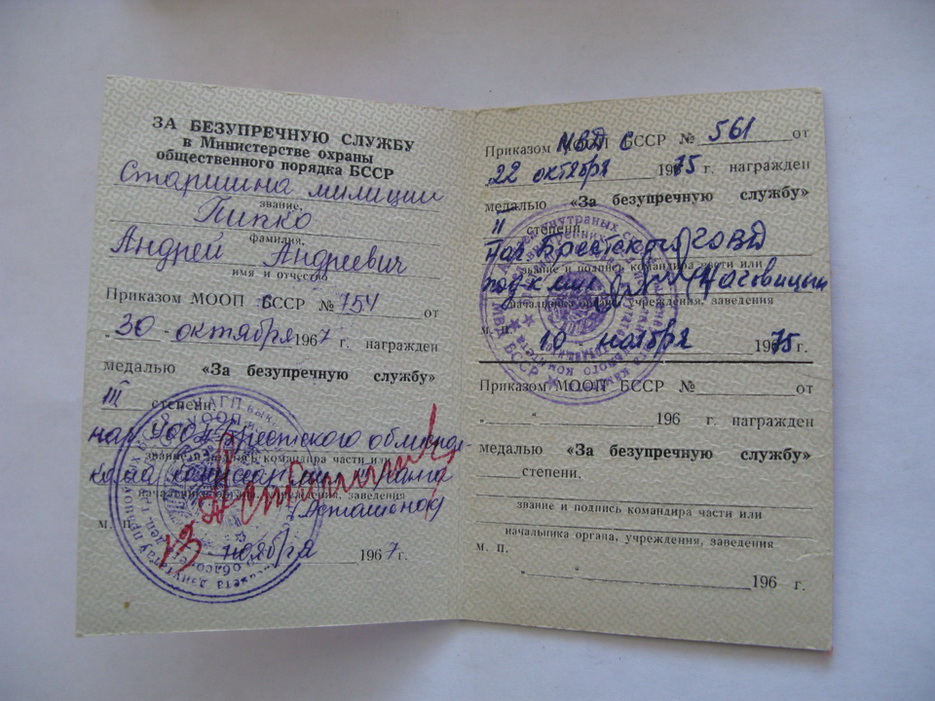 ЗА БЕЗУПРЕЧНУЮ СЛУЖБУ
в Министерстве охраны
общественного порядка БССР
Старшина милиции
звание,
Пипко
фамилия,
Андрей Андреевич
имя и отчество
Приказом МООП БССР № 754 от
"30" октября 1967 г. награжден
медалью «За безупречную службу»
III степени.
нач УООП Брестского облисполкома
звание и подпись командира части или
комиссар мил. ранга
начальника органа, учреждения, заведения
М. П.
13 ноября 1967 г.
Приказом МООП БССР № 561 от
МВД
22 октября 1975 г. награжден
медалью «За безупречную службу»
II степени.
Нач. Брестского ГОВД
звание и подпись командира части или
подк мил.
начальника органа, учреждения, заведения
М. П.
10 ноября 1975 г.
Приказом МООП БССР № от
" " 196 г. награжден
медалью «За безупречную службу»
степени.
звание и подпись командира части или
начальника органа, учреждения, заведения
М. П.
" " 196 г.